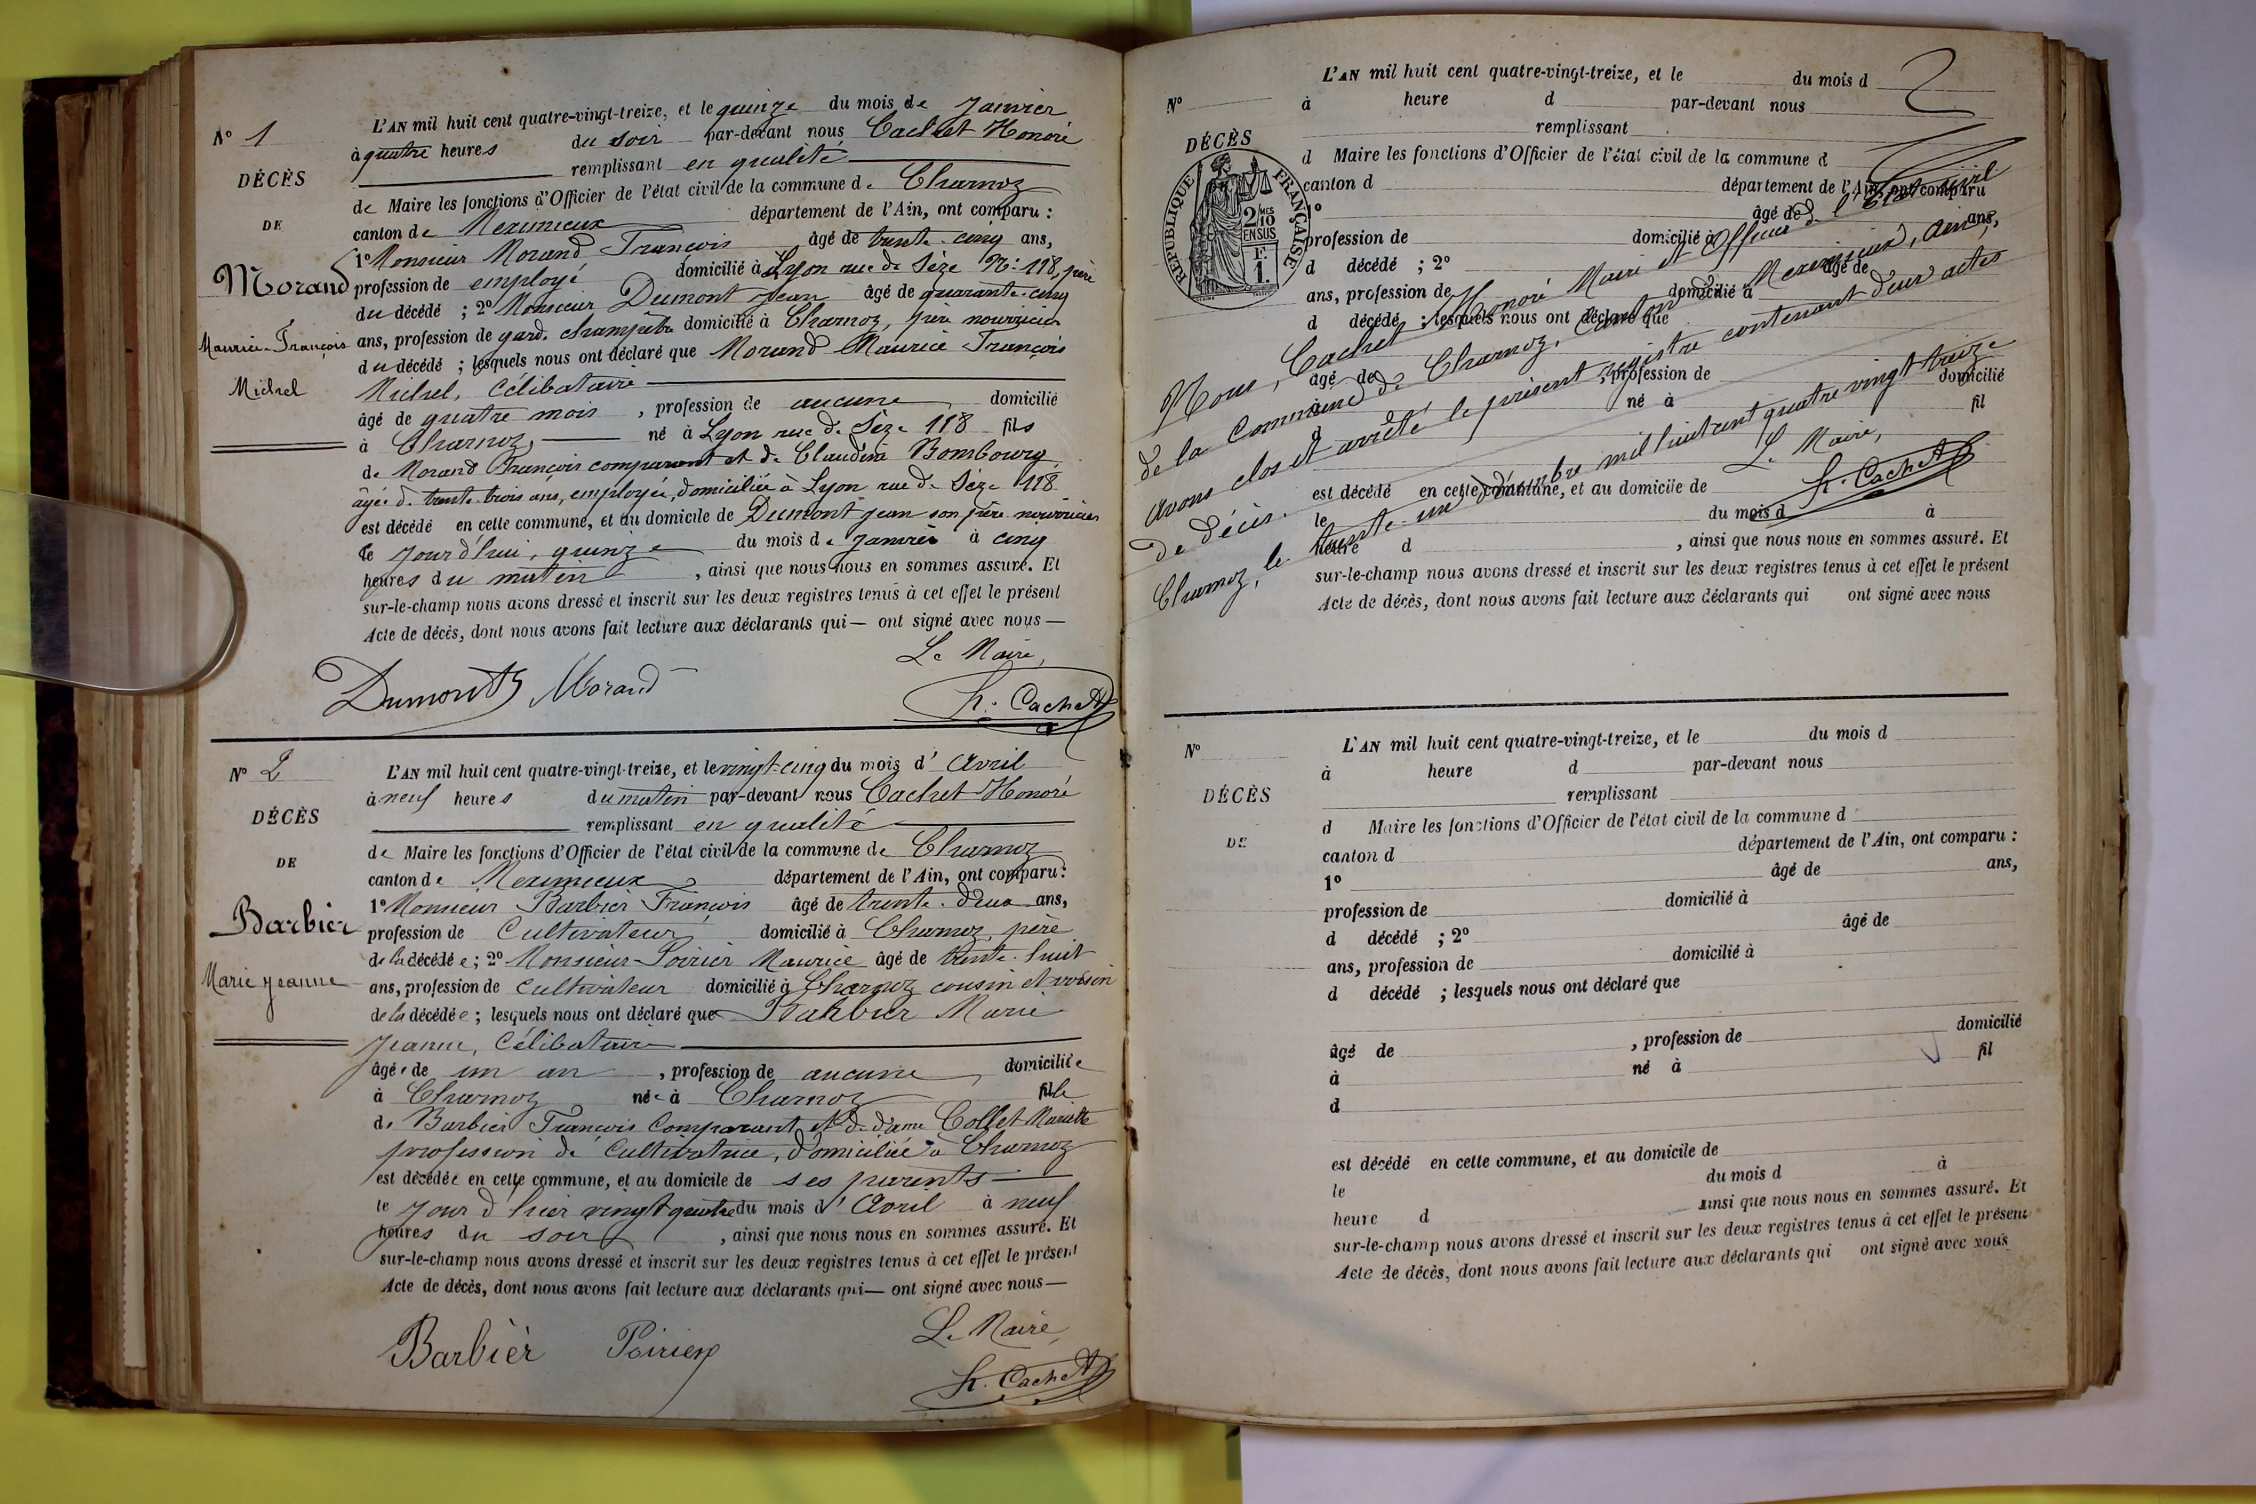 N° 1
DÉCÈS
DE
Morand
Maurice-François
Michel
L'AN mil huit cent quatre-vingt-treize, et le quinze du mois de Janvier
à quatre heures du soir par-devant nous Cachet Honoré
remplissant en qualité
de Maire les fonctions d'Officier de l'état civil de la commune de Charnoz
canton de Meximieux département de l'Ain, ont comparu :
1° Monsieur Morand François âgé de trente-cinq ans,
profession de employé domicilié à Lyon rue de Sèze N: 118, père
du décédé ; 2° Monsieur Dumont Jean âgé de quarante-cinq
ans, profession de gard. champêtre domicilié à Charnoz, père nourricier
du décédé ; lesquels nous ont déclaré que Morand Maurice-François
Michel, Célibataire
âgé de quatre mois, profession de aucune, domicilié
à Charnoz, né à Lyon rue de Sèze 118 fils
de Morand François comparant et de Claudine Bombourg
âgée de trente-trois ans, employée, domiciliée à Lyon rue de Sèze 118
est décédé en cette commune, et au domicile de Dumont Jean son père nourricier
le jourd'hui, quinze du mois de Janvier à cinq
heures du matin, ainsi que nous nous en sommes assuré. Et
sur-le-champ nous avons dressé et inscrit sur les deux registres tenus à cet effet le présent
Acte de décès, dont nous avons fait lecture aux déclarants qui — ont signé avec nous —
Le Maire,
Dumont J Morand H. Cachet
N° 2
DÉCÈS
DE
Barbier
Marie Jeanne
L'AN mil huit cent quatre-vingt-treize, et le vingt-cinq du mois d'Avril
à neuf heures du matin par-devant nous Cachet Honoré
remplissant en qualité
de Maire les fonctions d'Officier de l'état civil de la commune de Charnoz
canton de Meximieux département de l'Ain, ont comparu :
1° Monsieur Barbier François âgé de trente-deux ans,
profession de Cultivateur domicilié à Charnoz, père
de la décédée ; 2° Monsieur Poirier Maurice âgé de trente-huit
ans, profession de Cultivateur domicilié à Charnoz cousin et voisin
de la décédée ; lesquels nous ont déclaré que Barbier Marie
Jeanne, Célibataire
âgée de un an, profession de aucune, domiciliée
à Charnoz née à Charnoz fille
de Barbier François Comparant et de dame Collet Mariette
profession de Cultivatrice, domiciliée à Charnoz
est décédée en cette commune, et au domicile de ses parents
le jour d'hier vingt quatre du mois d'Avril à neuf
heures du soir, ainsi que nous nous en sommes assuré. Et
sur-le-champ nous avons dressé et inscrit sur les deux registres tenus à cet effet le présent
Acte de décès, dont nous avons fait lecture aux déclarants qui — ont signé avec nous —
Le Maire,
Barbier Poirier H. Cachet
2
N°
DÉCÈS
RÉPUBLIQUE FRANÇAISE
2/10 MES
EN SUS
F.
1.
L'AN mil huit cent quatre-vingt-treize, et le du mois d
à heure d par-devant nous
remplissant
d Maire les fonctions d'Officier de l'état civil de la commune d
canton d département de l'Ain, ont comparu
1° âgé de ans,
profession de domicilié à
d décédé ; 2° âgé de
ans, profession de domicilié à
d décédé ; lesquels nous ont déclaré que
âgé de , profession de domicilié
à né à fil
d
est décédé en cette commune, et au domicile de
le du mois d à
heure d , ainsi que nous nous en sommes assuré. Et
sur-le-champ nous avons dressé et inscrit sur les deux registres tenus à cet effet le présent
Acte de décès, dont nous avons fait lecture aux déclarants qui ont signé avec nous
Nous, Cachet Honoré Maire et Officier de l'Etat civil
de la Commune de Charnoz, Canton de Meximieux, Ain,
avons clos et arrêté le présent registre contenant deux actes
de décès.
Charnoz, le trente-un décembre mil huit cent quatre vingt treize
Le Maire,
H. Cachet
N°
DÉCÈS
DE
L'AN mil huit cent quatre-vingt-treize, et le du mois d
à heure d par-devant nous
remplissant
d Maire les fonctions d'Officier de l'état civil de la commune d
canton d département de l'Ain, ont comparu :
1° âgé de ans,
profession de domicilié à
d décédé ; 2° âgé de
ans, profession de domicilié à
d décédé ; lesquels nous ont déclaré que
âgé de , profession de domicilié
à né à fil
d
est décédé en cette commune, et au domicile de
le du mois d à
heure d ainsi que nous nous en sommes assuré. Et
sur-le-champ nous avons dressé et inscrit sur les deux registres tenus à cet effet le présent
Acte de décès, dont nous avons fait lecture aux déclarants qui ont signé avec nous